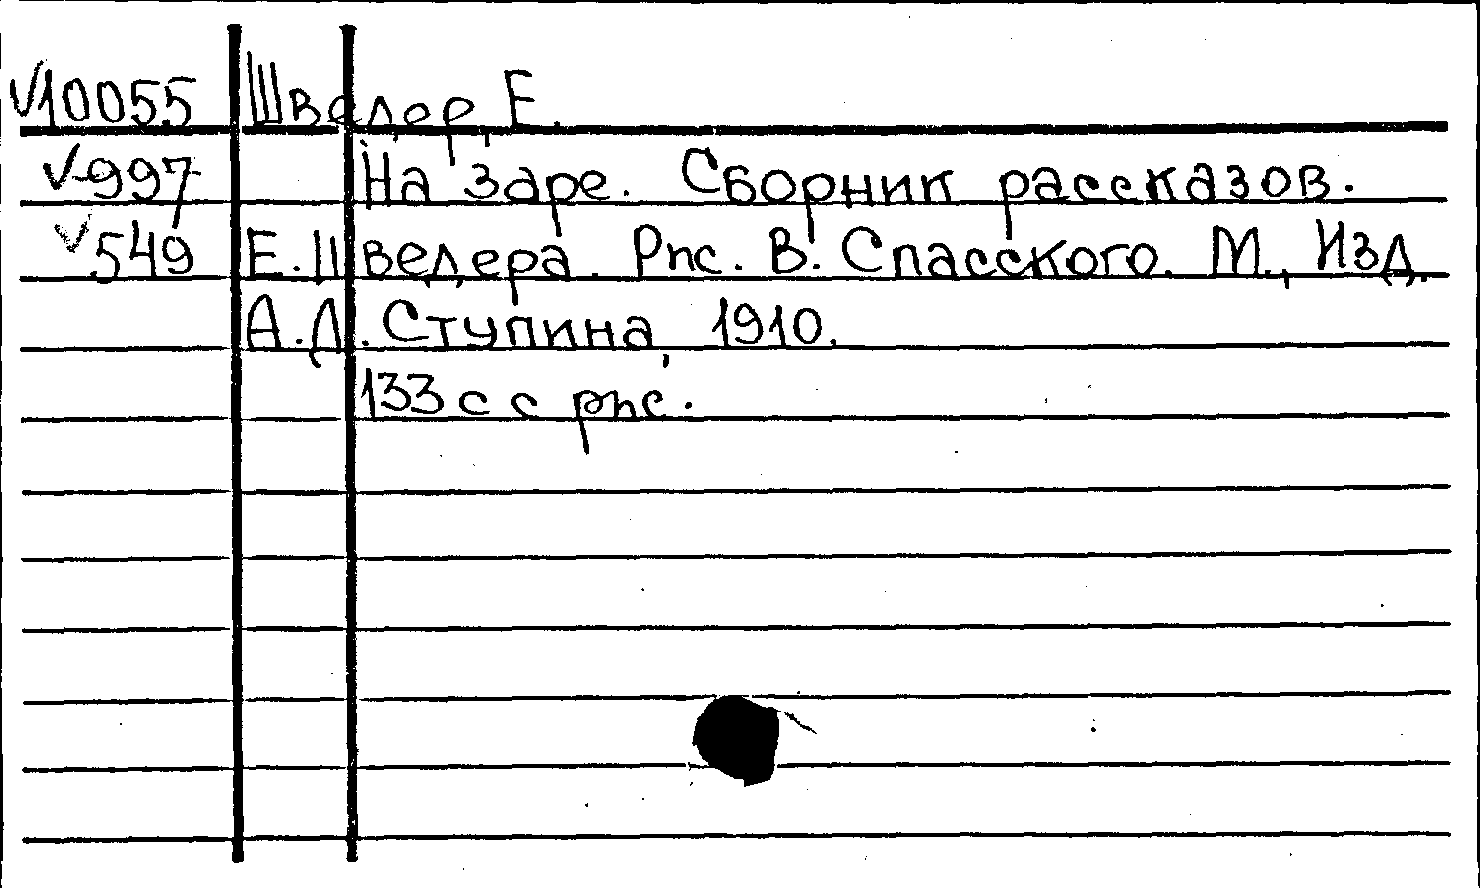 √10055 Шведер, Е.
√997 На заре. Сборник рассказов.
√549 Е. Шведера. Рис. В. Спасского. М., Изд.
А.Д. Ступина, 1910.
133 с с рис.